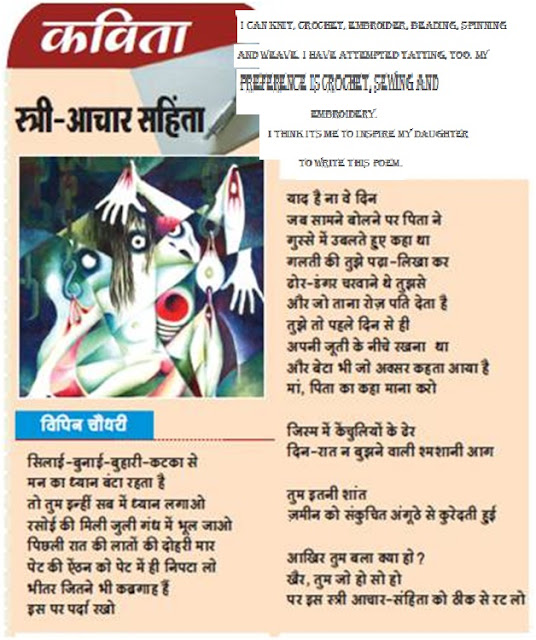 कविता
I CAN KNIT, CROCHET, EMBROIDER, BEADING, SPINNING
AND WEAVE. I HAVE ATTEMPTED TATTING, TOO. MY
PREFERENCE IS CROCHET, SEWING AND
EMBROIDERY.
I THINK ITS ME TO INSPIRE MY DAUGHTER
TO WRITE THIS POEM.
स्त्री-आचार सहिंता
विपिन चौधरी
सिलाई-बुनाई-बुहारी-कटका से
मन का ध्यान बंटा रहता है
तो तुम इन्हीं सब में ध्यान लगाओ
रसोई की मिली जुली गंध में भूल जाओ
पिछली रात की लातों की दोहरी मार
पेट की ऐंठन को पेट में ही निपटा लो
भीतर जितने भी कब्रगाह हैं
इस पर पर्दा रखो
याद है ना वे दिन
जब सामने बोलने पर पिता ने
गुस्से में उबलते हुए कहा था
गलती की तुझे पढ़ा-लिखा कर
ढोर-डंगर चरवाने थे तुझसे
और जो ताना रोज़ पति देता है
तुझे तो पहले दिन से ही
अपनी जूती के नीचे रखना था
और बेटा भी जो अक्सर कहता आया है
मां, पिता का कहा माना करो
जिस्म में केंचुलियों के ढेर
दिन-रात न बुझने वाली श्मशानी आग
तुम इतनी शांत
ज़मीन को संकुचित अंगूठे से कुरेदती हुई
आखिर तुम बला क्या हो ?
खैर, तुम जो हो सो हो
पर इस स्त्री आचार-संहिता को ठीक से रट लो